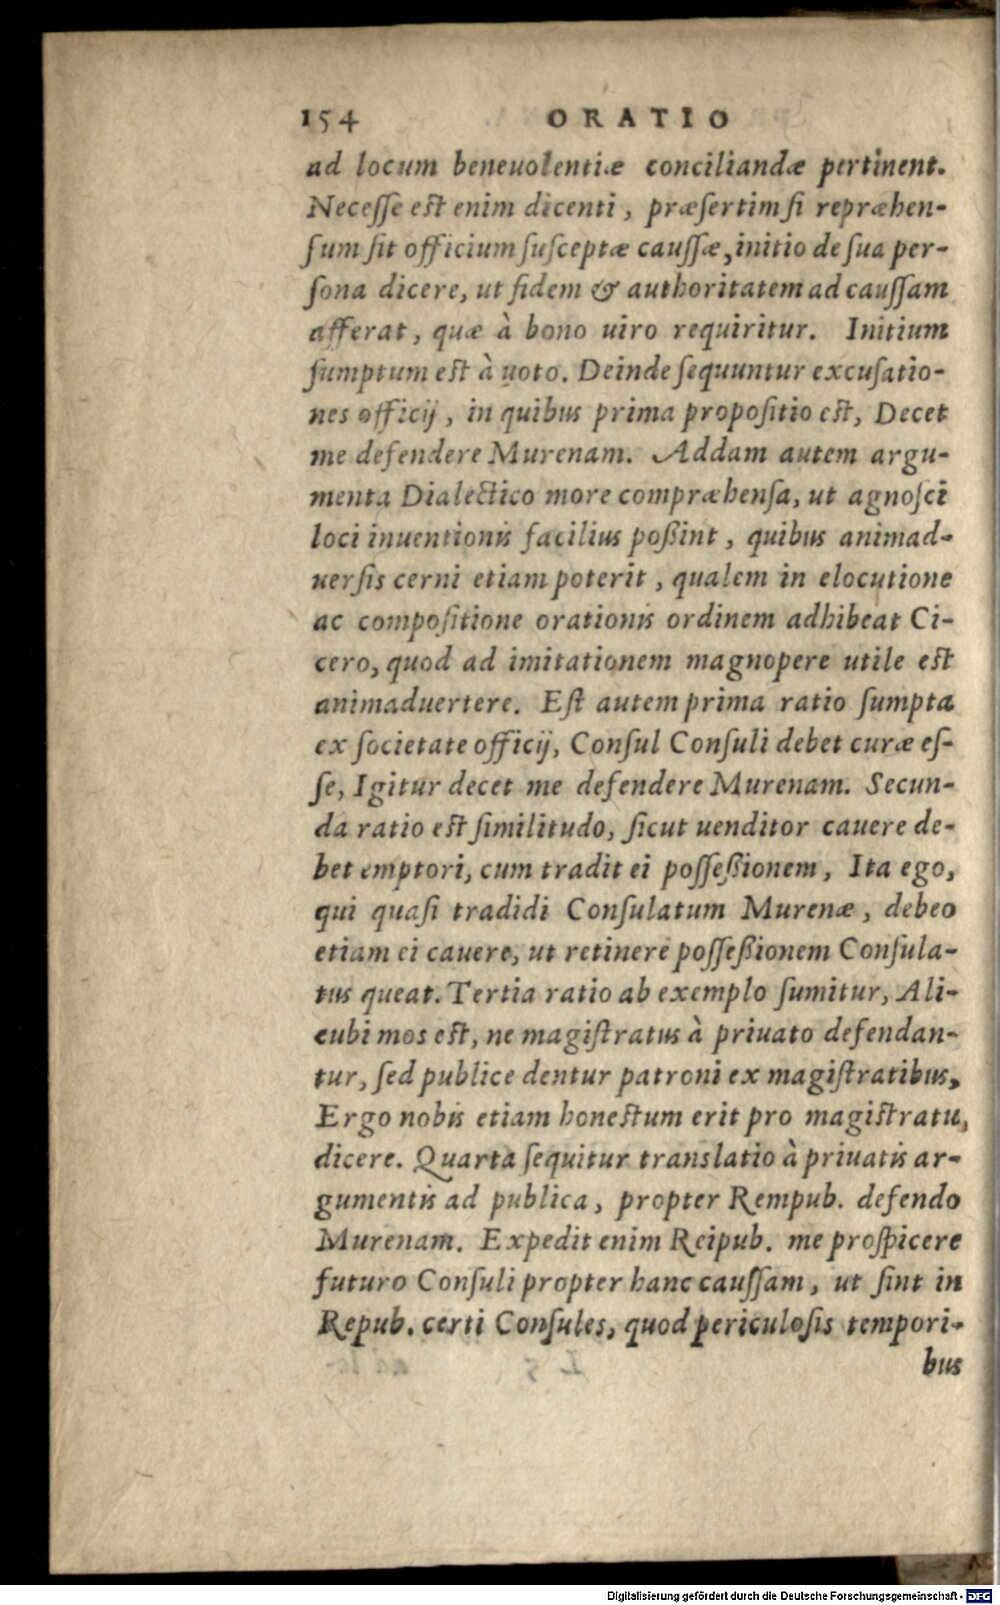 154 ORATIO
ad locum beneuolentiæ conciliandæ pertinent.
Neceſſe eſt enim dicenti, præſertim ſi repræhen-
ſum ſit officium ſuſceptæ cauſſæ, initio de ſua per-
ſona dicere, ut fidem & authoritatem ad cauſſam
afferat, quæ à bono uiro requiritur. Initium
ſumptum eſt à uoto. Deinde ſequuntur excuſatio-
nes officij, in quibus prima propoſitio eſt, Decet
me defendere Murenam. Addam autem argu-
menta Dialectico more compræhenſa, ut agnoſci
loci inuentionis facilius poßint, quibus animad-
uerſis cerni etiam poterit, qualem in elocutione
ac compoſitione orationis ordinem adhibeat Ci-
cero, quod ad imitationem magnopere utile eſt
animaduertere. Eſt autem prima ratio ſumpta
ex ſocietate officij, Conſul Conſuli debet curæ eſ-
ſe, Igitur decet me defendere Murenam. Secun-
da ratio eſt ſimilitudo, ſicut uenditor cauere de-
bet emptori, cum tradit ei poſſeßionem, Ita ego,
qui quaſi tradidi Conſulatum Murenæ, debeo
etiam ei cauere, ut retinere poſſeßionem Conſula-
tus queat. Tertia ratio ab exemplo ſumitur, Ali-
cubi mos eſt, ne magiſtratus à priuato defendan-
tur, ſed publice dentur patroni ex magiſtratibus,
Ergo nobis etiam honeſtum erit pro magiſtratu,
dicere. Quarta ſequitur translatio à priuatis ar-
gumentis ad publica, propter Rempub. defendo
Murenam. Expedit enim Reipub. me proſpicere
futuro Conſuli propter hanc cauſſam, ut ſint in
Repub. certi Conſules, quod periculoſis tempori-
bus
Digitalisierung gefördert durch die Deutsche Forschungsgemeinschaft - DFG